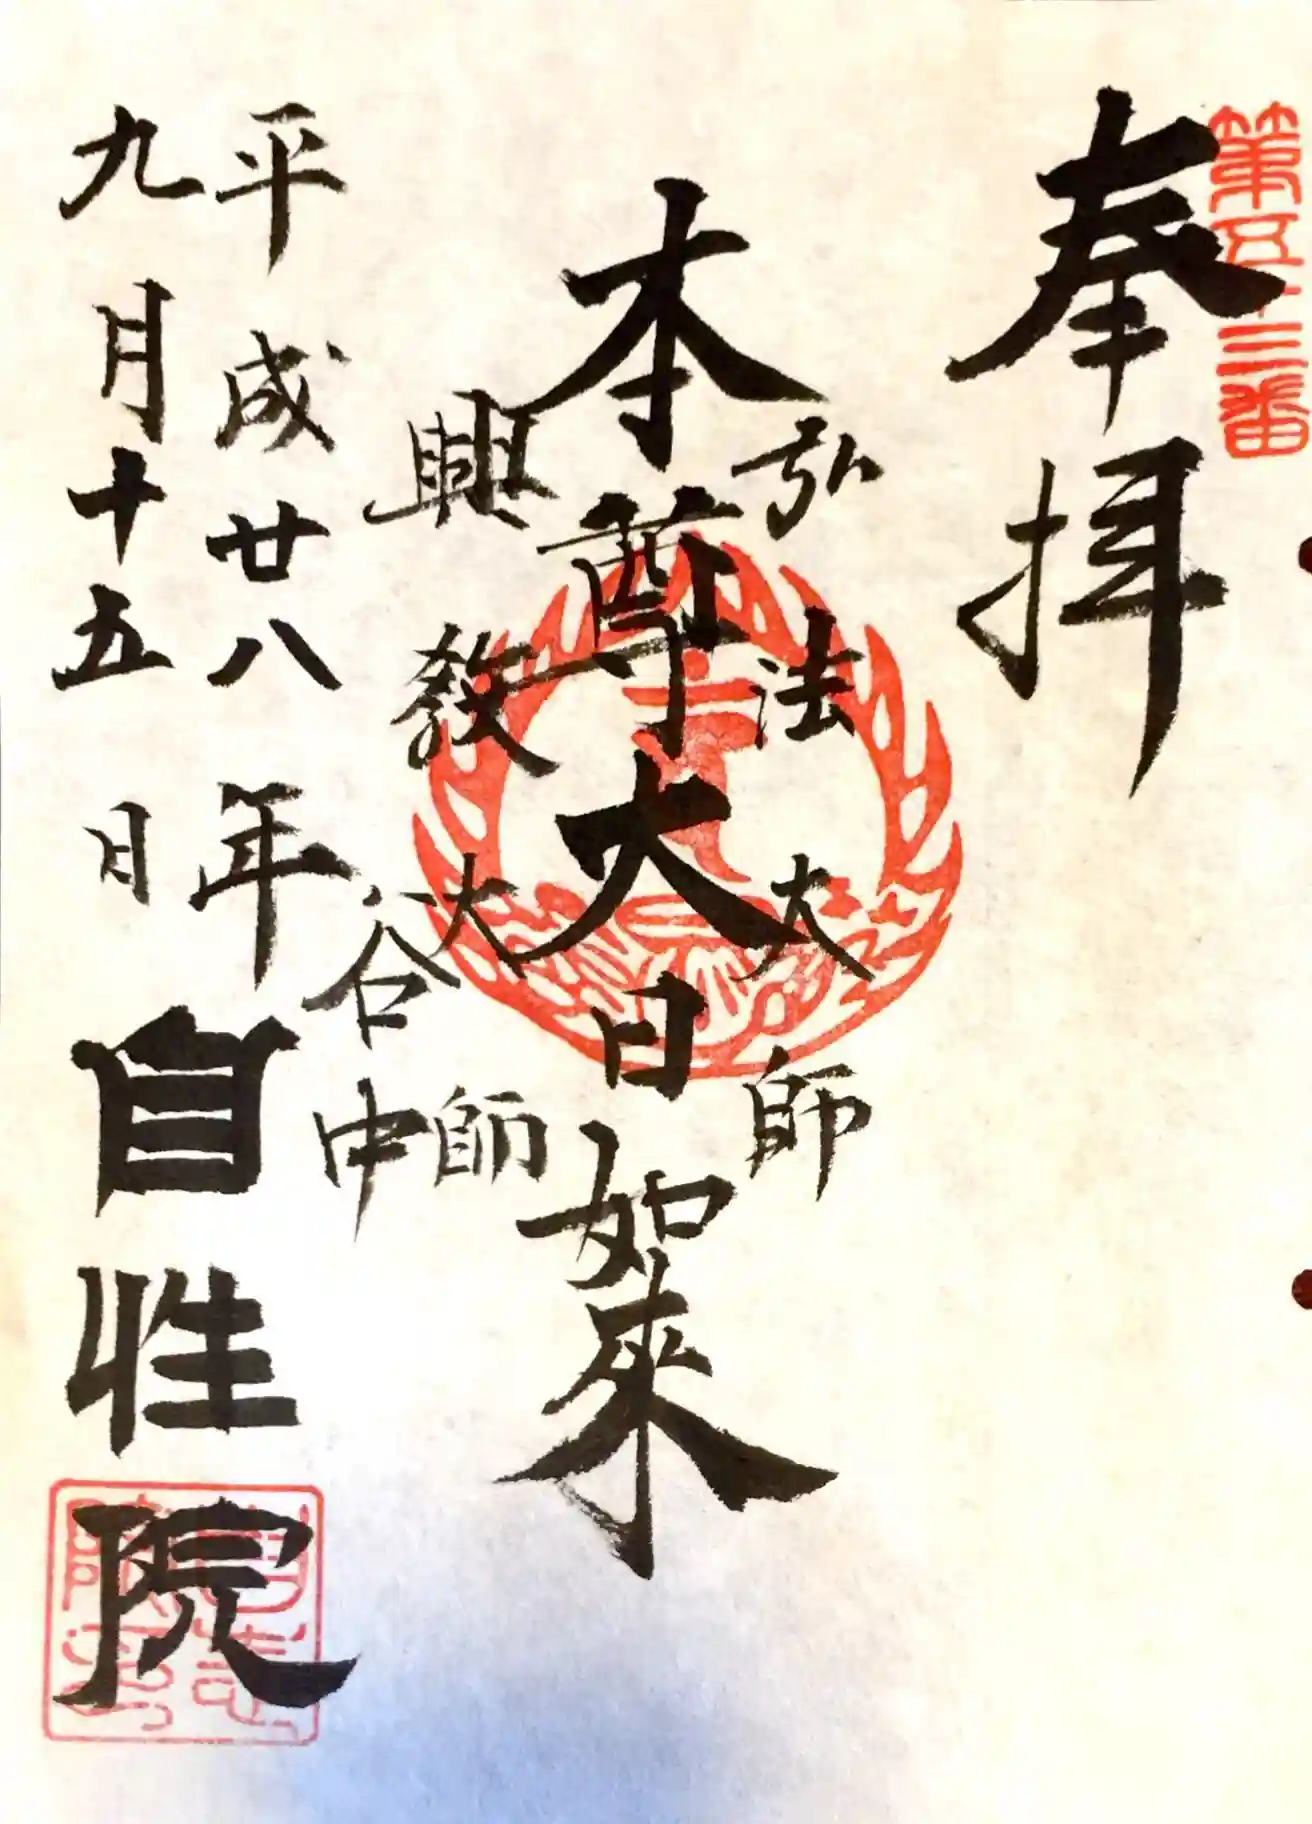 第五十三番
奉拝
弘法大師
本尊大日如來
興教大師
谷中
平成廿八年
九月十五日
自性院